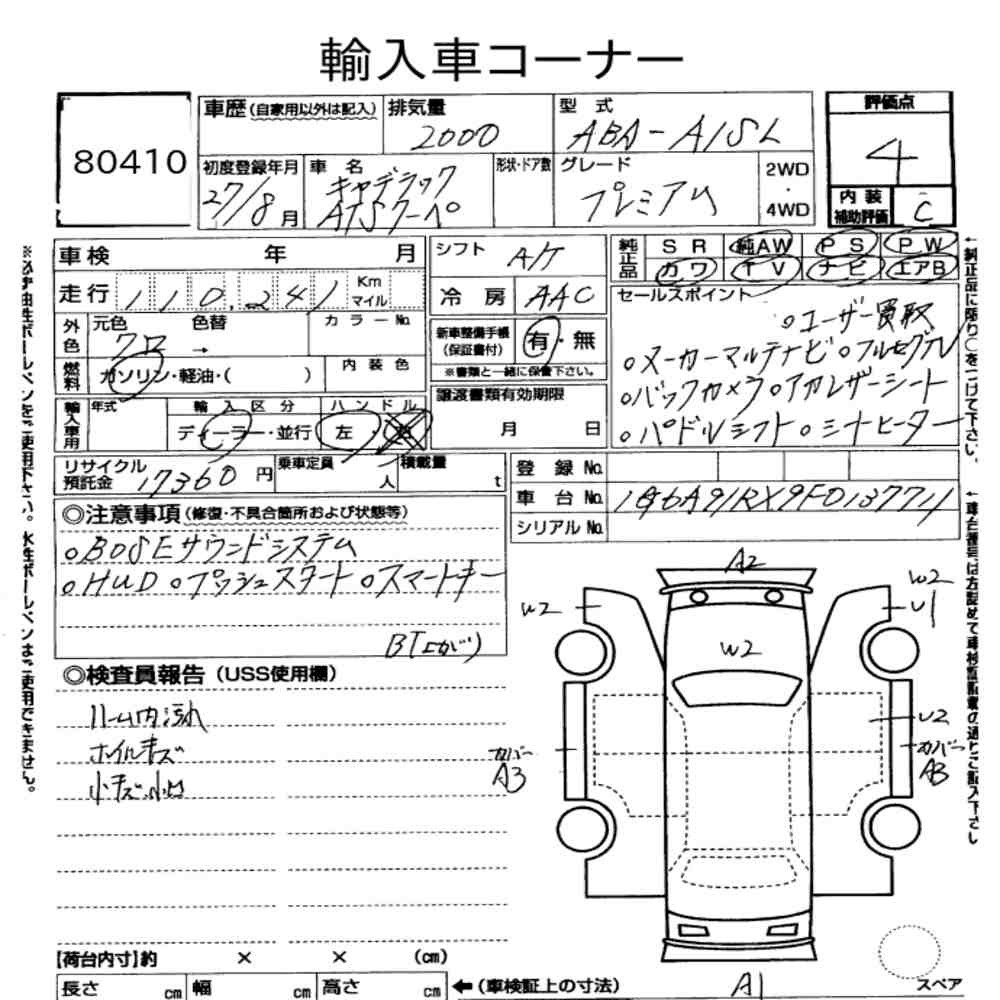 輸入車コーナー
80410
車歴(自家用以外は記入)
排気量
2000
型式
ABA-A1SL
評価点
4
初度登録年月
27/8月
車名
キャデラック
ATSクーペ
形状・ドア数
グレード
プレミアム
2WD
・
4WD
内装
補助評価
C
車検 年 月
走行 110,241 Km マイル
外色
元色 色替
クロ →
カラーNo.
燃料
ガソリン・軽油・( )
内装色
輸入車用
年式
輸入区分
ディーラー・並行
ハンドル
左・右
リサイクル
預託金
17360円
乗車定員
人
積載量
t
シフト
A/T
冷房
AAC
新車整備手帳
(保証書付)
有・無
※書類と一緒に保管下さい。
譲渡書類有効期限
月 日
純正品
SR 純AW PS PW
カワ TV ナビ エアB
セールスポイント
○ユーザー買取
○メーカーマルチナビ ○フルセグTV
○バックカメラ ○アカレザーシート
○パドルシフト ○シートヒーター
登録No.
車台No.
1G6A91RX9F0137711
シリアルNo.
◎注意事項(修復・不具合箇所および状態等)
○BOSEサウンドシステム
○HUD ○プッシュスタート ○スマートキー
BT(上がり)
◎検査員報告(USS使用欄)
ルーム内汚れ
ホイルキズ
小キズ・小凹
A2
W2
W2
W2
U1
U2
カバー
A3
カバー
A3
A1
スペア
【荷台内寸】約 × × (cm)
長さ cm 幅 cm 高さ cm
←(車検証上の寸法)
※必ず油性ボールペンをご使用下さい。水性ボールペンはご使用できません。
←純正品に限り○をつけて下さい。
←車台番号は左詰めで車検証記載の通りご記入下さい